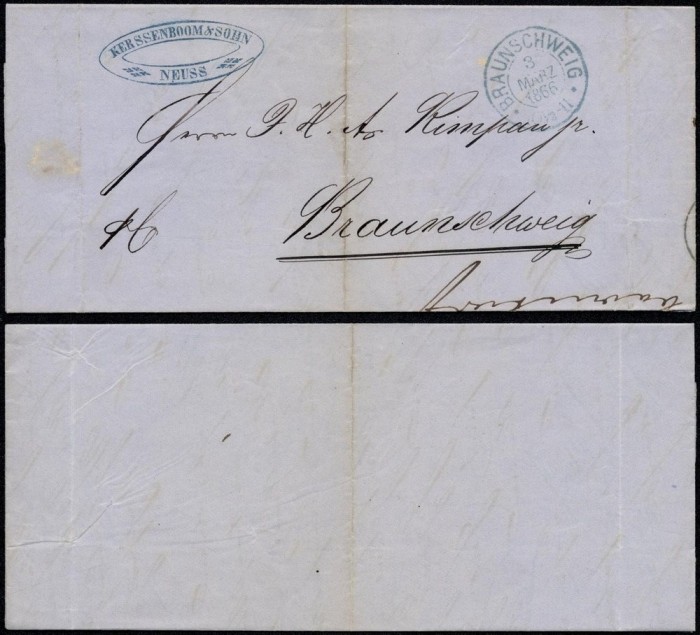 KERSSENBOOM & SOHN
NEUSS
BRAUNSCHWEIG
3
MARZ
1866
Herrn P. H. A. Kimpau jr.
Braunschweig